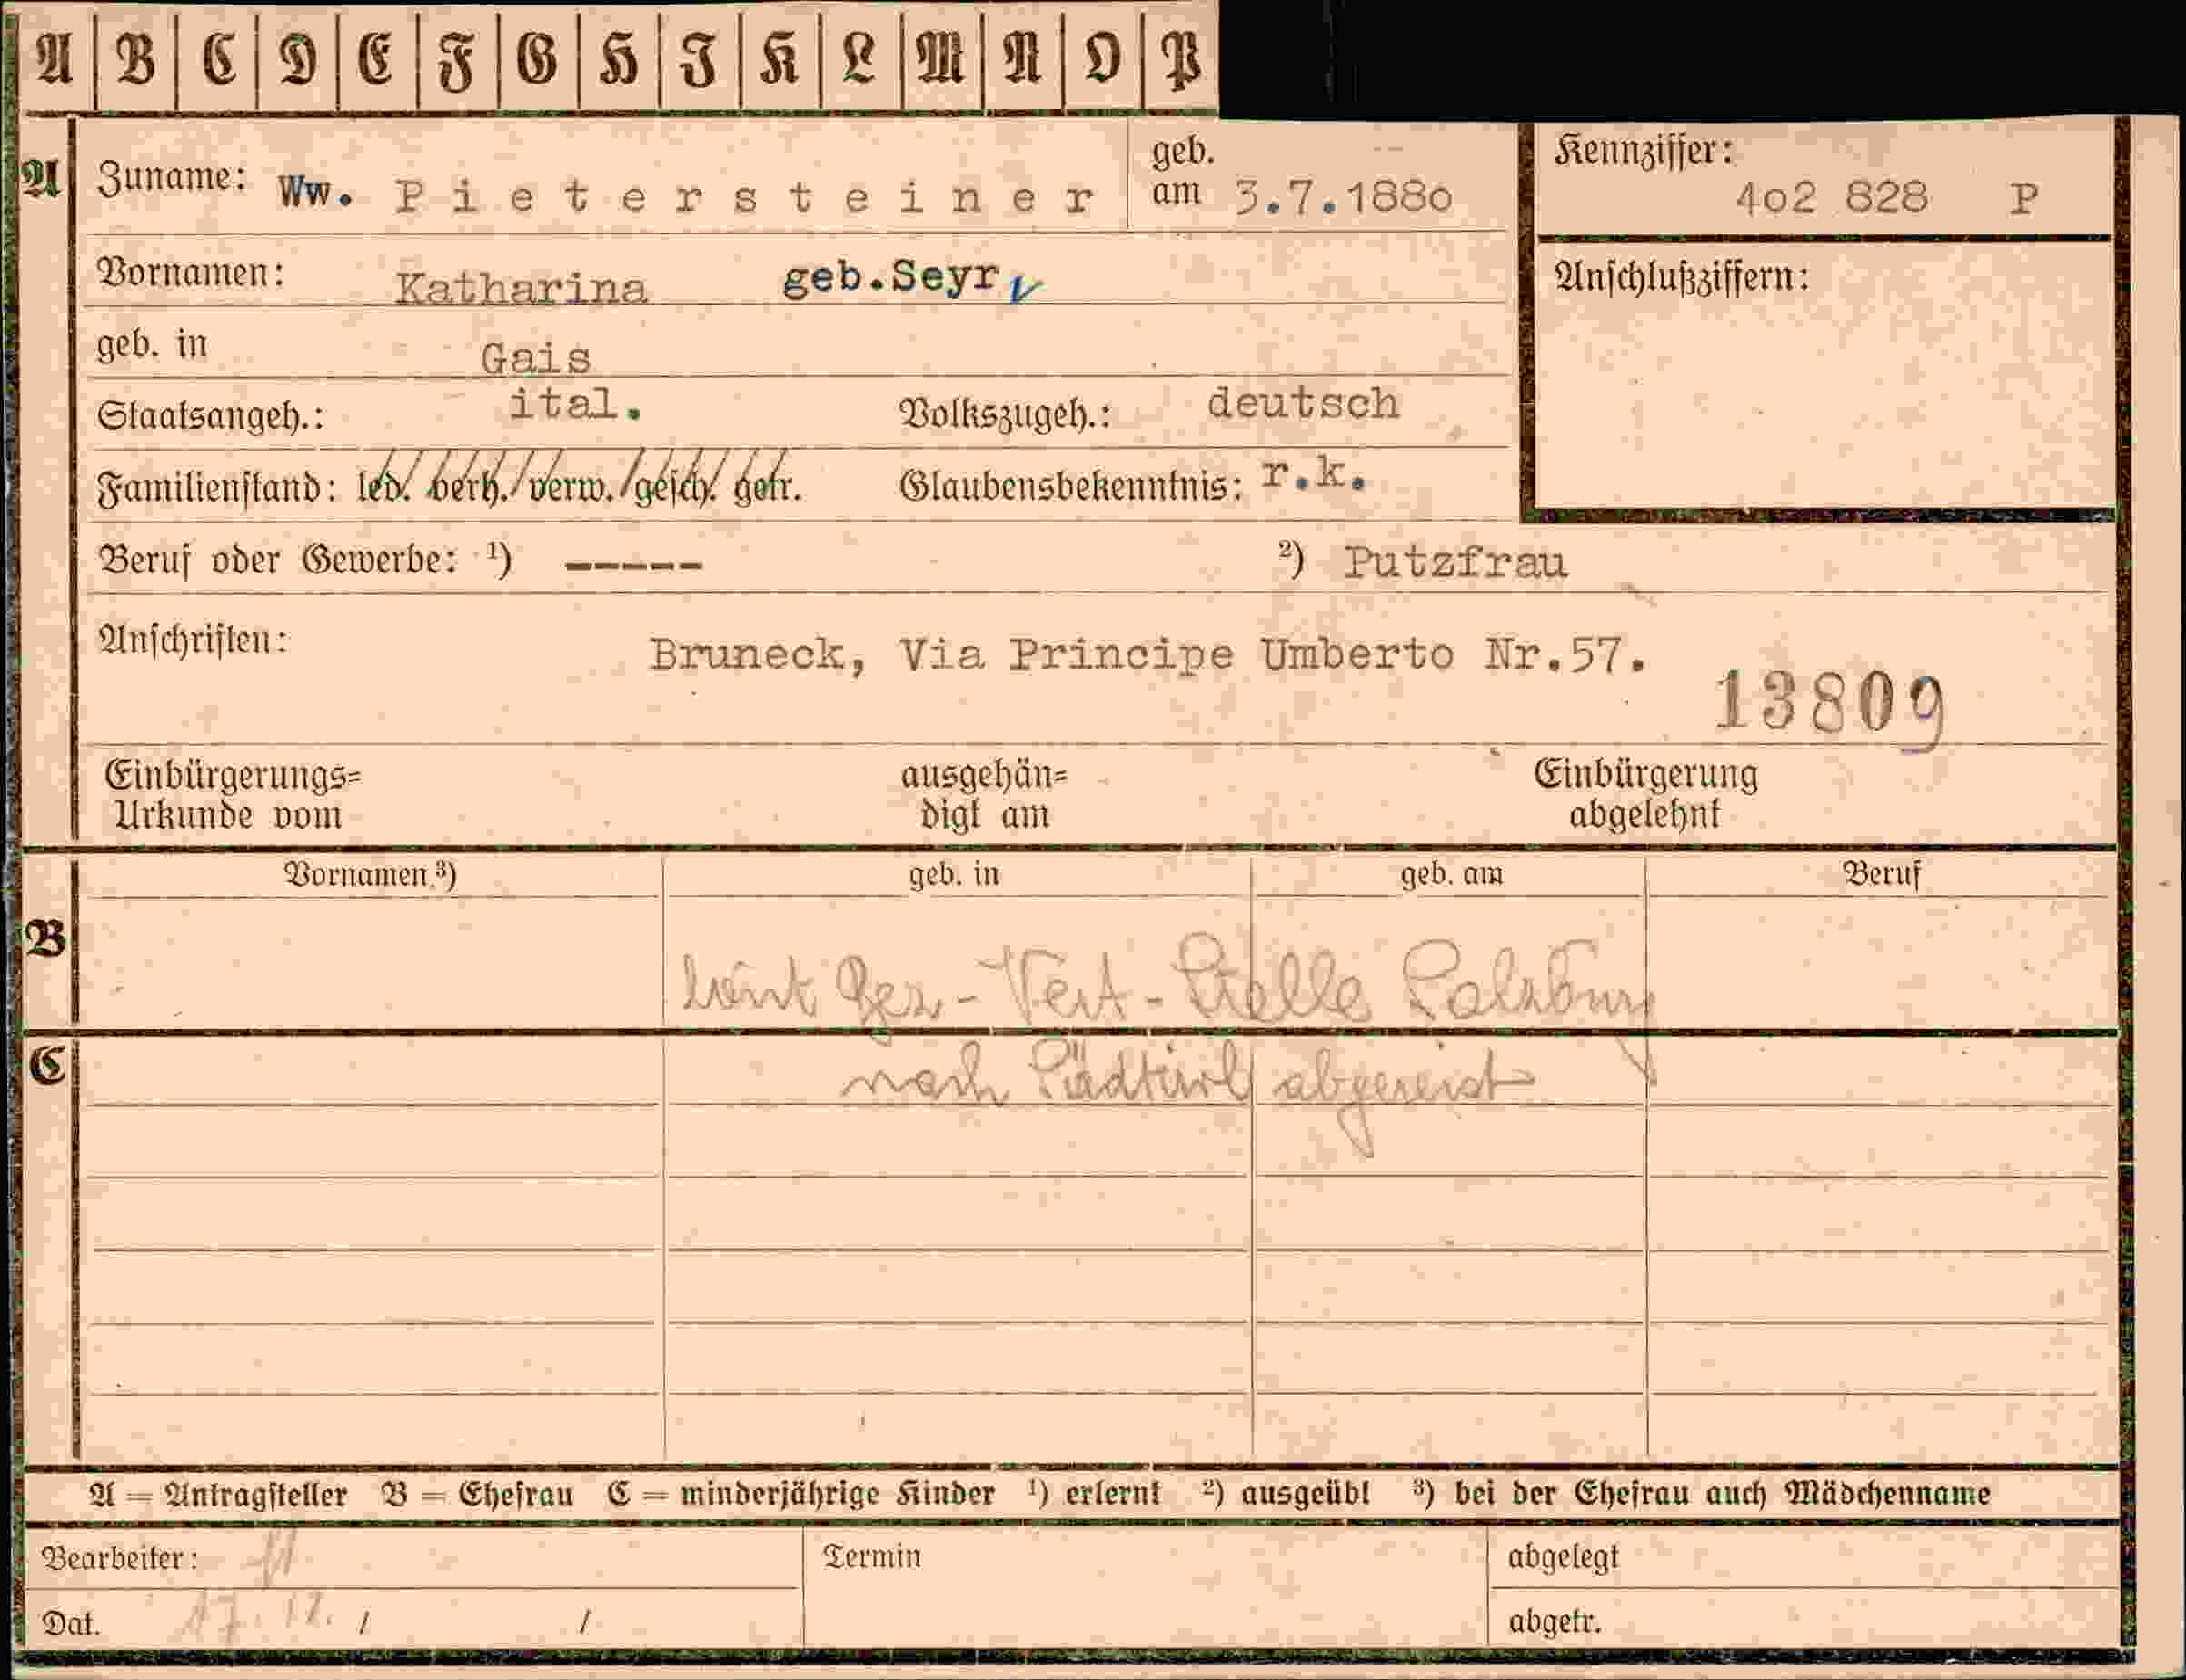 A B C D E F G H I K L M N O P
A Zuname: Ww. Pietersteiner geb. am 3.7.1880 Kennziffer: 402 828 P
Vornamen: Katharina geb.Seyr Anschlußziffern:
geb. in Gais
Staatsangeh.: ital. Volkszugeh.: deutsch
Familienstand: led./ verh./ verw./ gesch./ getr. Glaubensbekenntnis: r.k.
Beruf oder Gewerbe: ¹) ----- ²) Putzfrau
Anschriften: Bruneck, Via Principe Umberto Nr.57.
13809
Einbürgerungs= ausgehän= Einbürgerung
Urkunde vom digt am abgelehnt
Vornamen ³) geb. in geb. am Beruf
B
laut Gez-Vert-Stelle Salzburg
C
nach Südtirol abgereist
A = Antragsteller B = Ehefrau C = minderjährige Kinder ¹) erlernt ²) ausgeübt ³) bei der Ehefrau auch Mädchenname
Bearbeiter: Termin abgelegt
Dat. 17.12. / / abgetr.